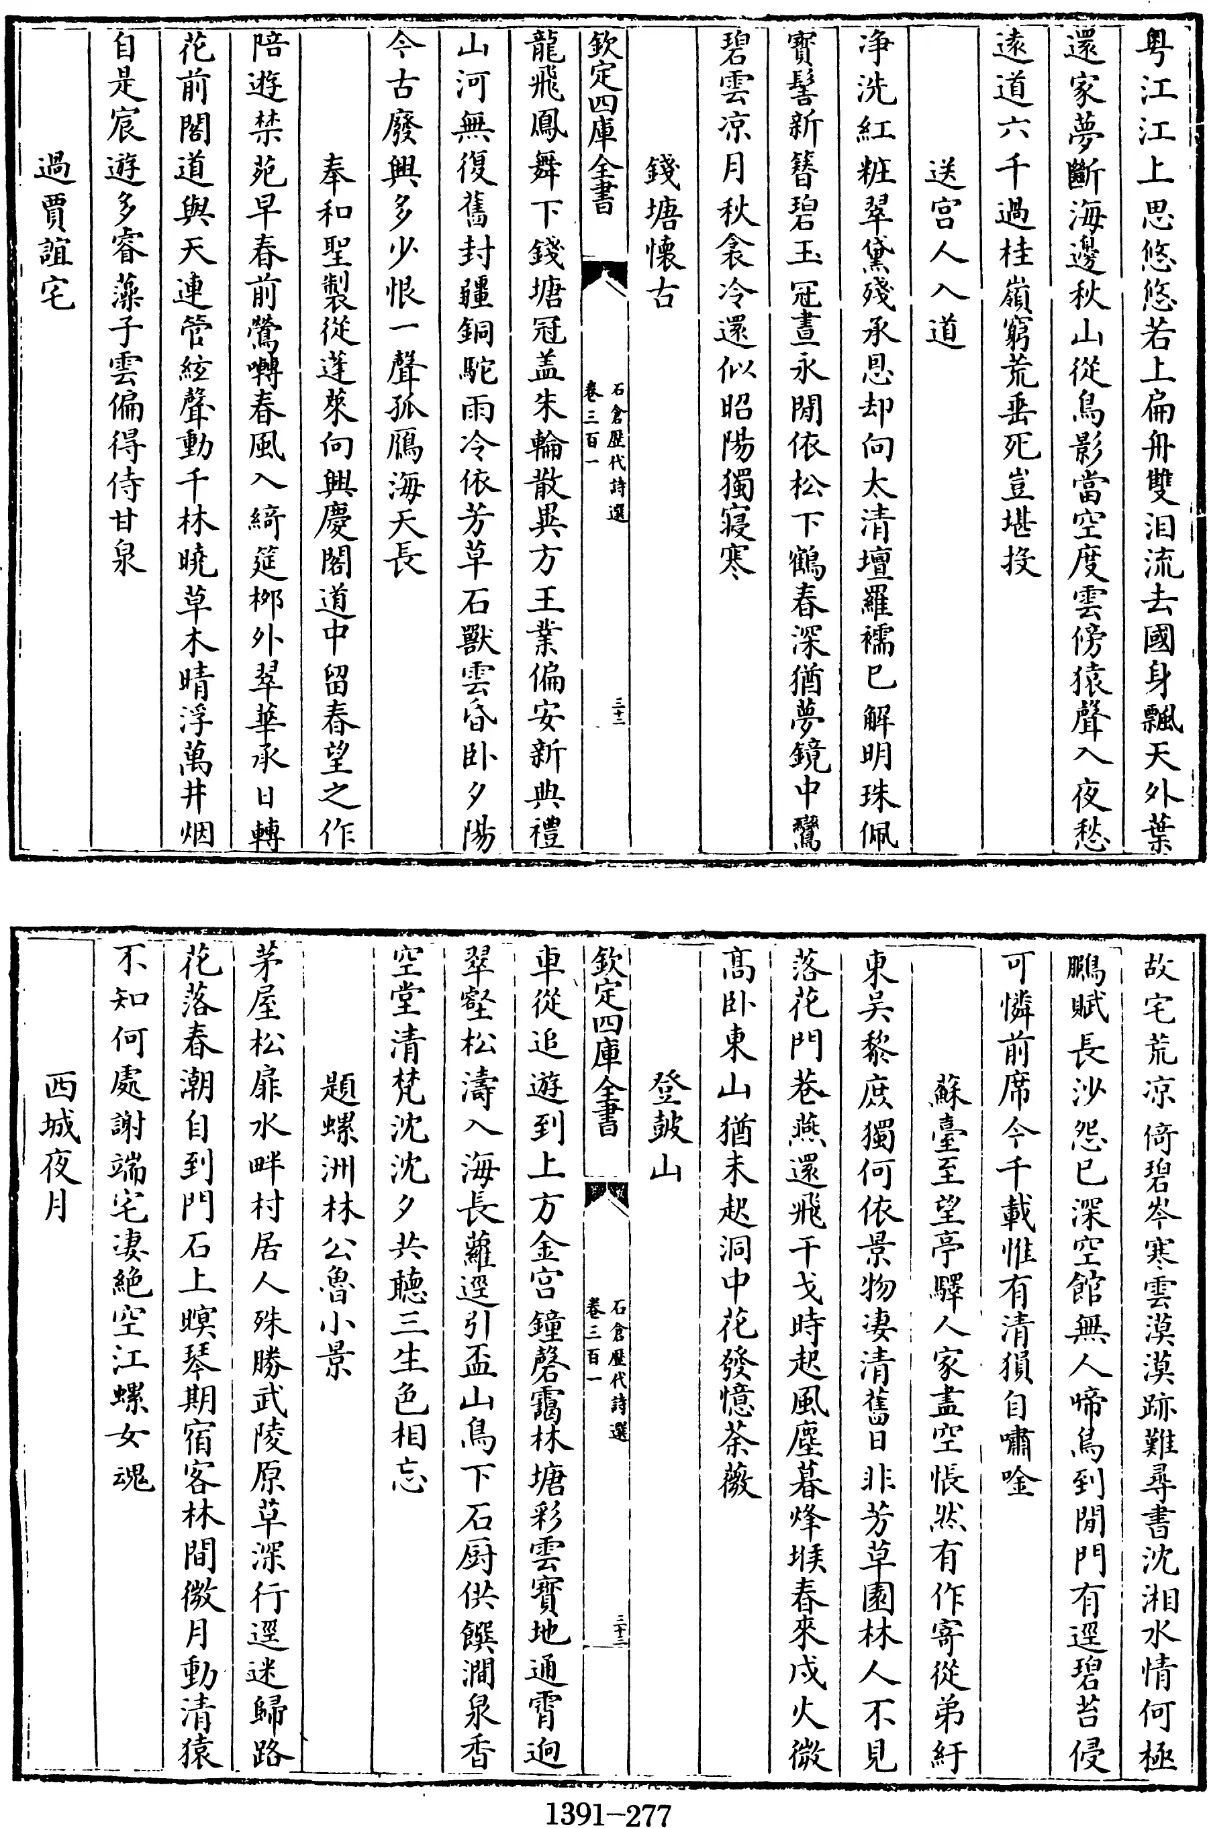 粤江江上思悠悠若上扁舟雙泪流去國身飄天外葉
還家夢斷海邊秋山從鳥影當空度雲傍猿聲入夜愁
逺道六千過桂嶺窮荒垂死豈堪投
送宫人入道
净洗紅粧翠黛殘承恩却向太清壇羅襦已解明珠佩
寳髻新簪碧玉冠晝永閒依松下鶴春深猶夢鏡中鸞
碧雲凉月秋衾冷還似昭陽獨寢寒
錢塘懷古
欽定四庫全書
石倉歴代詩選
卷三百一
三十二
龍飛鳳舞下錢塘冠盖朱輪散異方王業偏安新典禮
山河無復舊封疆銅駝雨冷依芳草石獸雲昏卧夕陽
今古廢興多少恨一聲孤鴈海天長
奉和聖製從蓬萊向興慶閣道中留春望之作
陪遊禁苑早春前鶯囀春風入綺筵栁外翠華承日轉
花前閣道與天連管絃聲動千林曉草木晴浮萬井烟
自是宸遊多睿藻子雲偏得侍甘泉
過賈誼宅
故宅荒凉倚碧岑寒雲漠漠跡難尋書沈湘水情何極
鵩賦長沙怨已深空館無人啼鳥到閒門有逕碧苔侵
可憐前席今千載惟有清猿自嘯唫
蘇臺至望亭驛人家盡空悵然有作寄從弟紓
東吴黎庶獨何依景物凄清舊日非芳草園林人不見
落花門巷燕還飛干戈時起風塵暮烽堠春來戍火微
髙卧東山猶未起洞中花發憶荼薇
登鼓山
欽定四庫全書
石倉歴代詩選
卷三百一
三十三
車從追遊到上方金宫鐘磬靄林塘彩雲寳地通霄逈
翠壑松濤入海長蘿逕引盃山鳥下石厨供饌澗泉香
空堂清梵沈沈夕共聽三生色相忘
題螺洲林公魯小景
茅屋松扉水畔村居人殊勝武陵原草深行逕迷歸路
花落春潮自到門石上暝琴期宿客林間微月動清猿
不知何處謝端宅凄絶空江螺女魂
西城夜月
1391-277